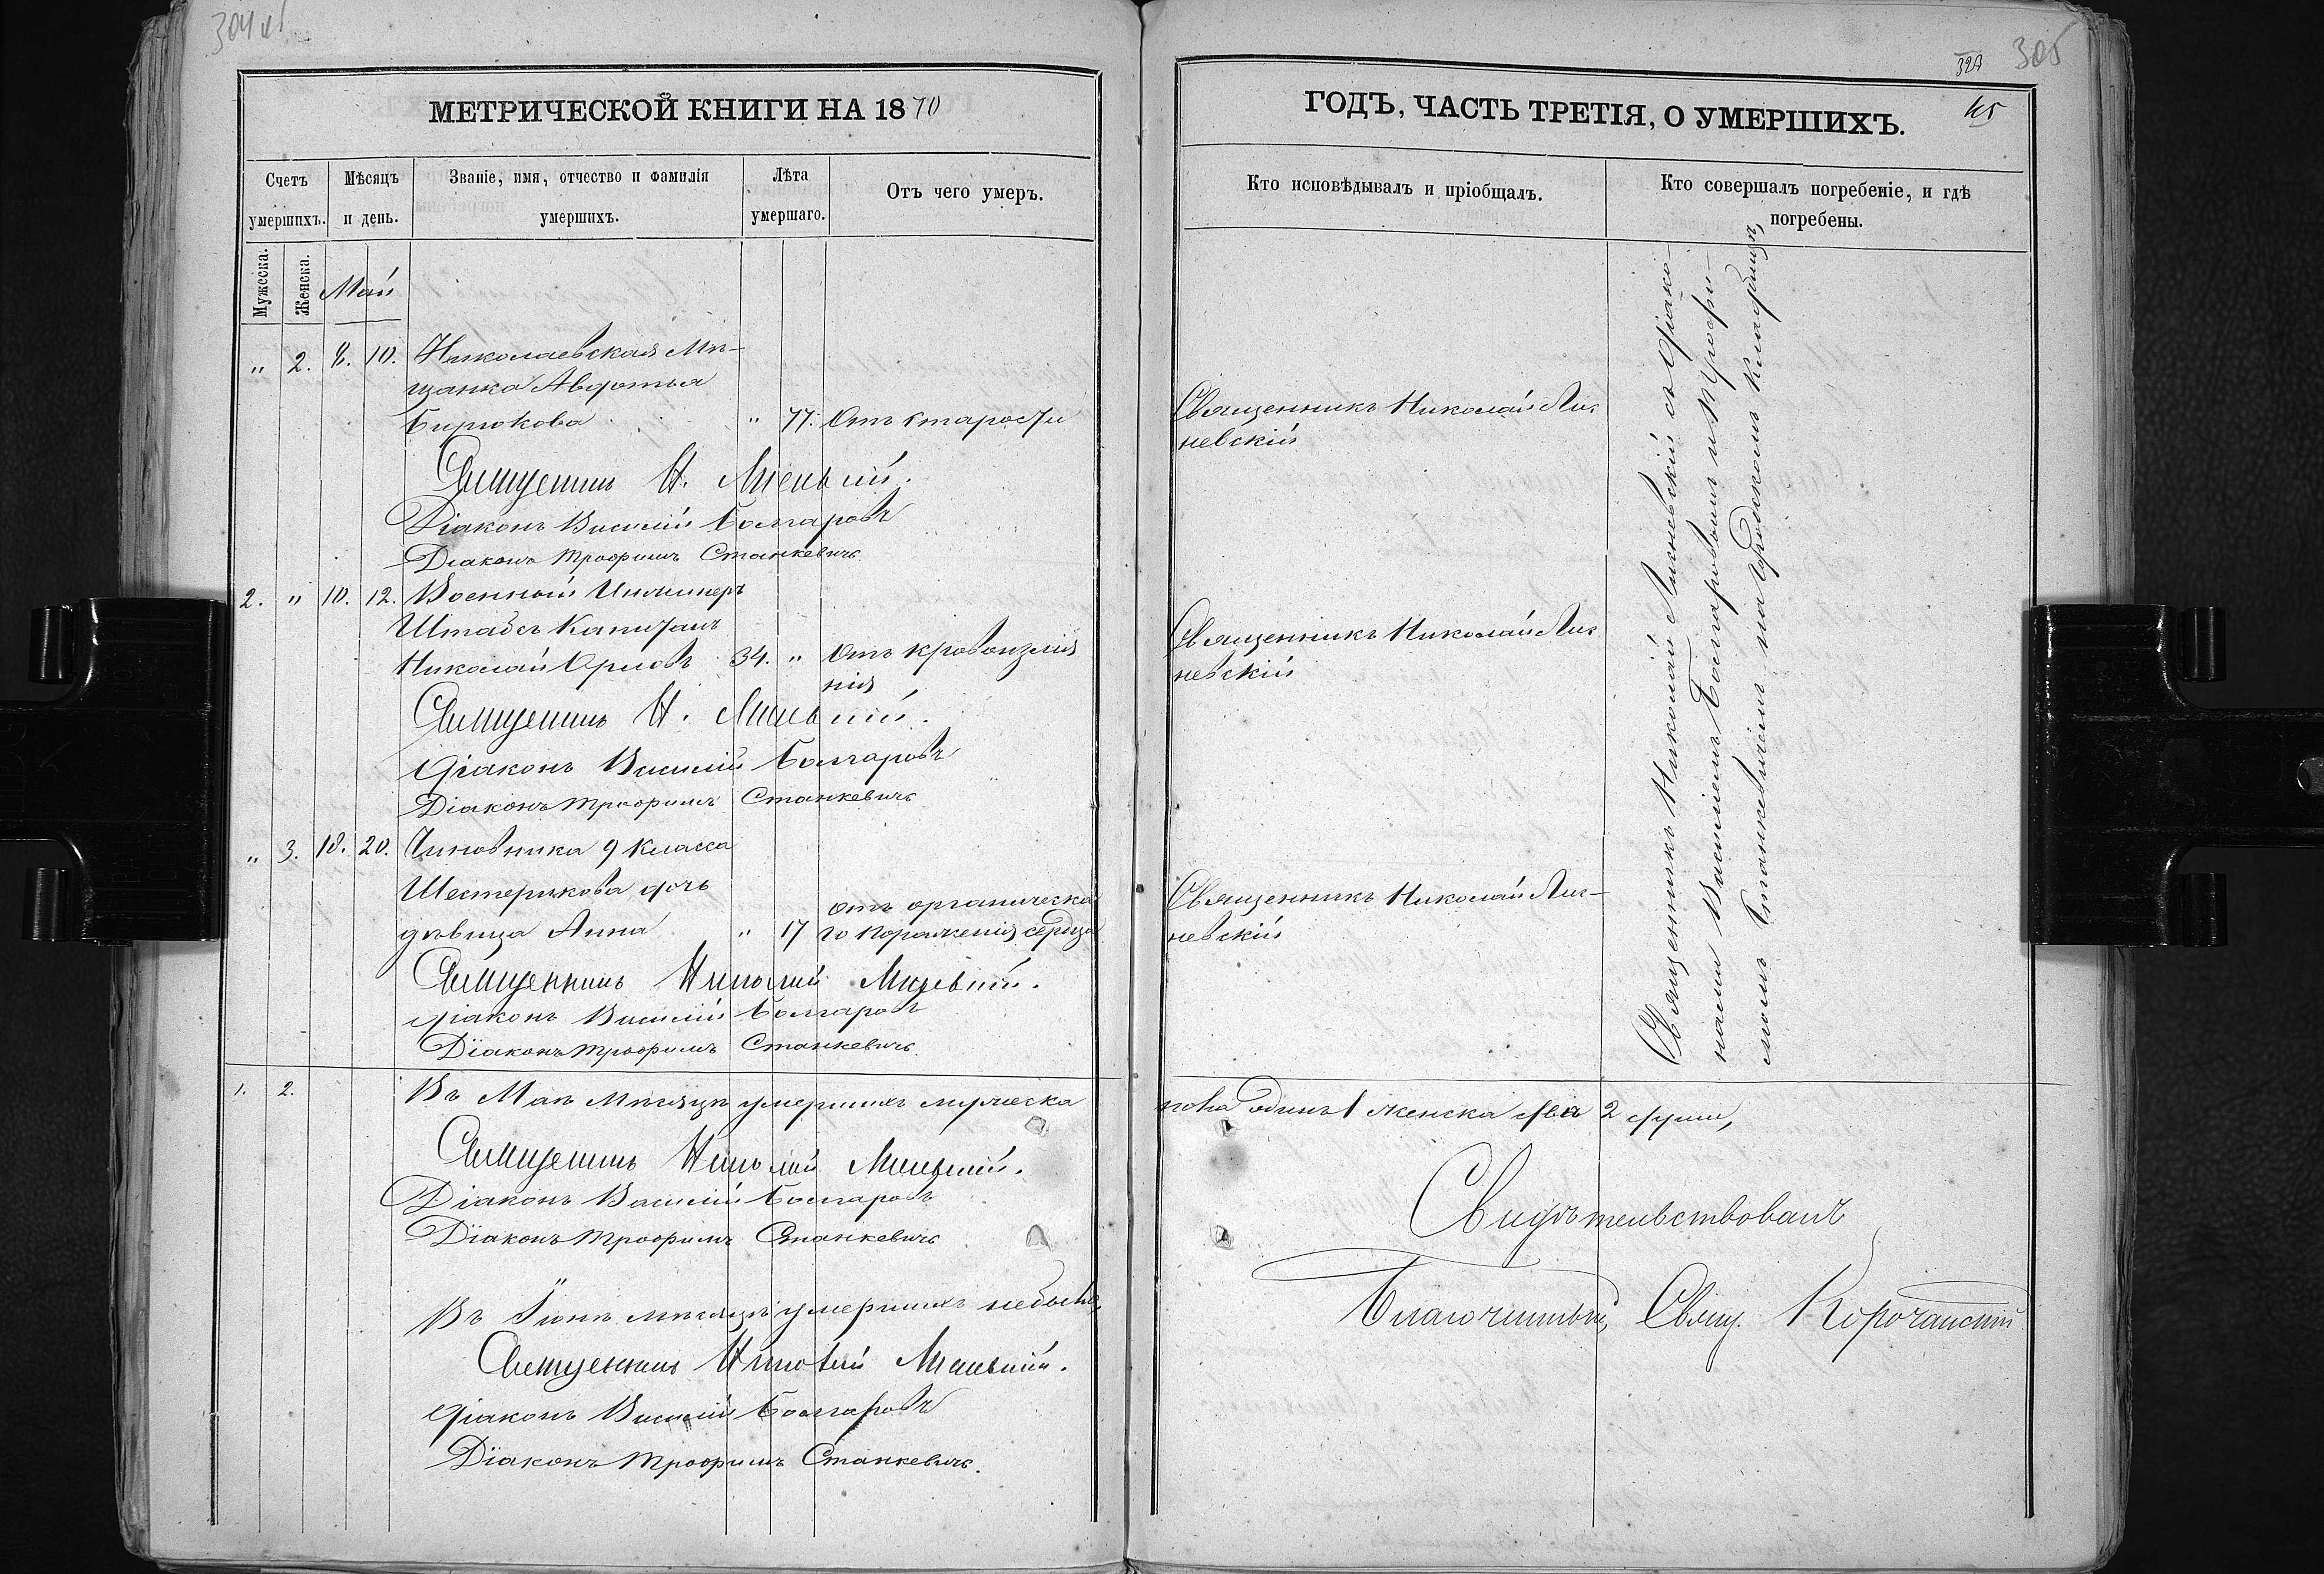 304 об
МЕТРИЧЕСКОЙ КНИГИ НА 1870
Счетъ умершихъ.
Мѣсяцъ и день.
Званіе, имя, отчество и фамилія умершихъ.
Лѣта умершаго.
Отъ чего умеръ.
Мужеска.
Женска.
Май
" 2. 8. 10. Николаевская Мѣ-
щанка Авдотья
Бирюкова " 77. Отъ старости
Священникъ Н. Лисневскій.
Діаконъ Василій Болгаровъ
Діаконъ Трофимъ Станкевичъ
2. " 10. 12. Военный Инжинеръ
Штабсъ Капитанъ
Николай Орловъ 34. " Отъ кровоизлія
нія
Священникъ Н. Лисневскій.
Діаконъ Василій Болгаровъ
Діаконъ Трофимъ Станкевичъ
" 3. 18. 20. Чиновника 9 класса
Шестерикова дочь
дѣвица Анна " 17 отъ органическа
го пораженія сердца
Священникъ Николай Лисневскій.
Діаконъ Василій Болгаровъ
Діаконъ Трофимъ Станкевичъ.
1. 2. Въ Маѣ мѣсяцѣ умершихъ мужеска
Священникъ Николай Лисневскій.
Діаконъ Василій Болгаровъ
Діаконъ Трофимъ Станкевичъ
Въ Іюнѣ мѣсяцѣ умершихъ небыло,
Священникъ Николай Лисневскій.
Діаконъ Василій Болгаровъ
Діаконъ Трофимъ Станкевичъ.
305
45
ГОДЪ, ЧАСТЬ ТРЕТІЯ, О УМЕРШИХЪ.
Кто исповѣдывалъ и пріобщалъ.
Кто совершалъ погребеніе, и гдѣ погребены.
Священникъ Николай Лис-
невскій
Священникъ Николай Лис-
невскій
Священникъ Николай Лис-
невскій
Священникъ Николай Лисневскій съ Діако-
нами Василіемъ Болгаровымъ и Трофи-
момъ Станкевичемъ на Городскомъ кладбищѣ,
пола одинъ 1 женска два 2 души,
Свидѣтельствовалъ
Благочинный, Свящ. Корочанскій